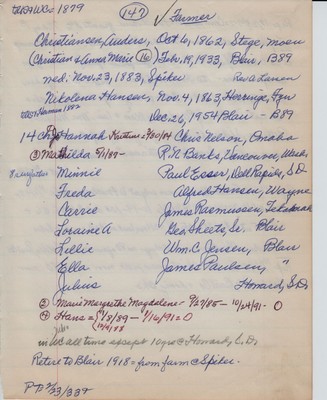 1879
(147) ✓ Farmer
Christiansen, Anders, Oct 6, 1862, Stege, Moen
(Christian & Anna Marie (16) Feb. 19, 1933, Blair, B89
med. Nov. 23, 1883, Spiker Rev A Larsen
Nikolena Hansen, Nov. 4, 1863, Herringe, Fyn
1882 Dec 26, 1954 Blair - B89
14 Ch Hannah Kathrine - 9/30/84 Chris Nelson, Omaha
(3) Mathilda 5/1/87- R. N. Banks, Vancouver, Wash
8 daughters Minnie Paul Esser, Dell Rapids, S.D
Freda Alfred Hansen, Wayne
Carrie James Rasmussen, Tekamah
Loraine A Geo Sheets Sr. Blair
Lillie Wm. C. Jensen, Blair
Ella James Paulsen, "
Julius Howard, S.D.
(2) Marie Margrethe Magdalene - 9/27/85 - 10/24/91 - O
(4) Hans = 9/8/89 - 9/16/91 = O
in W.C all time except 10 yrs @ Howard, S.D.
Retire to Blair 1918 = from farm @ Spiker.
P-D 2/23/33 p